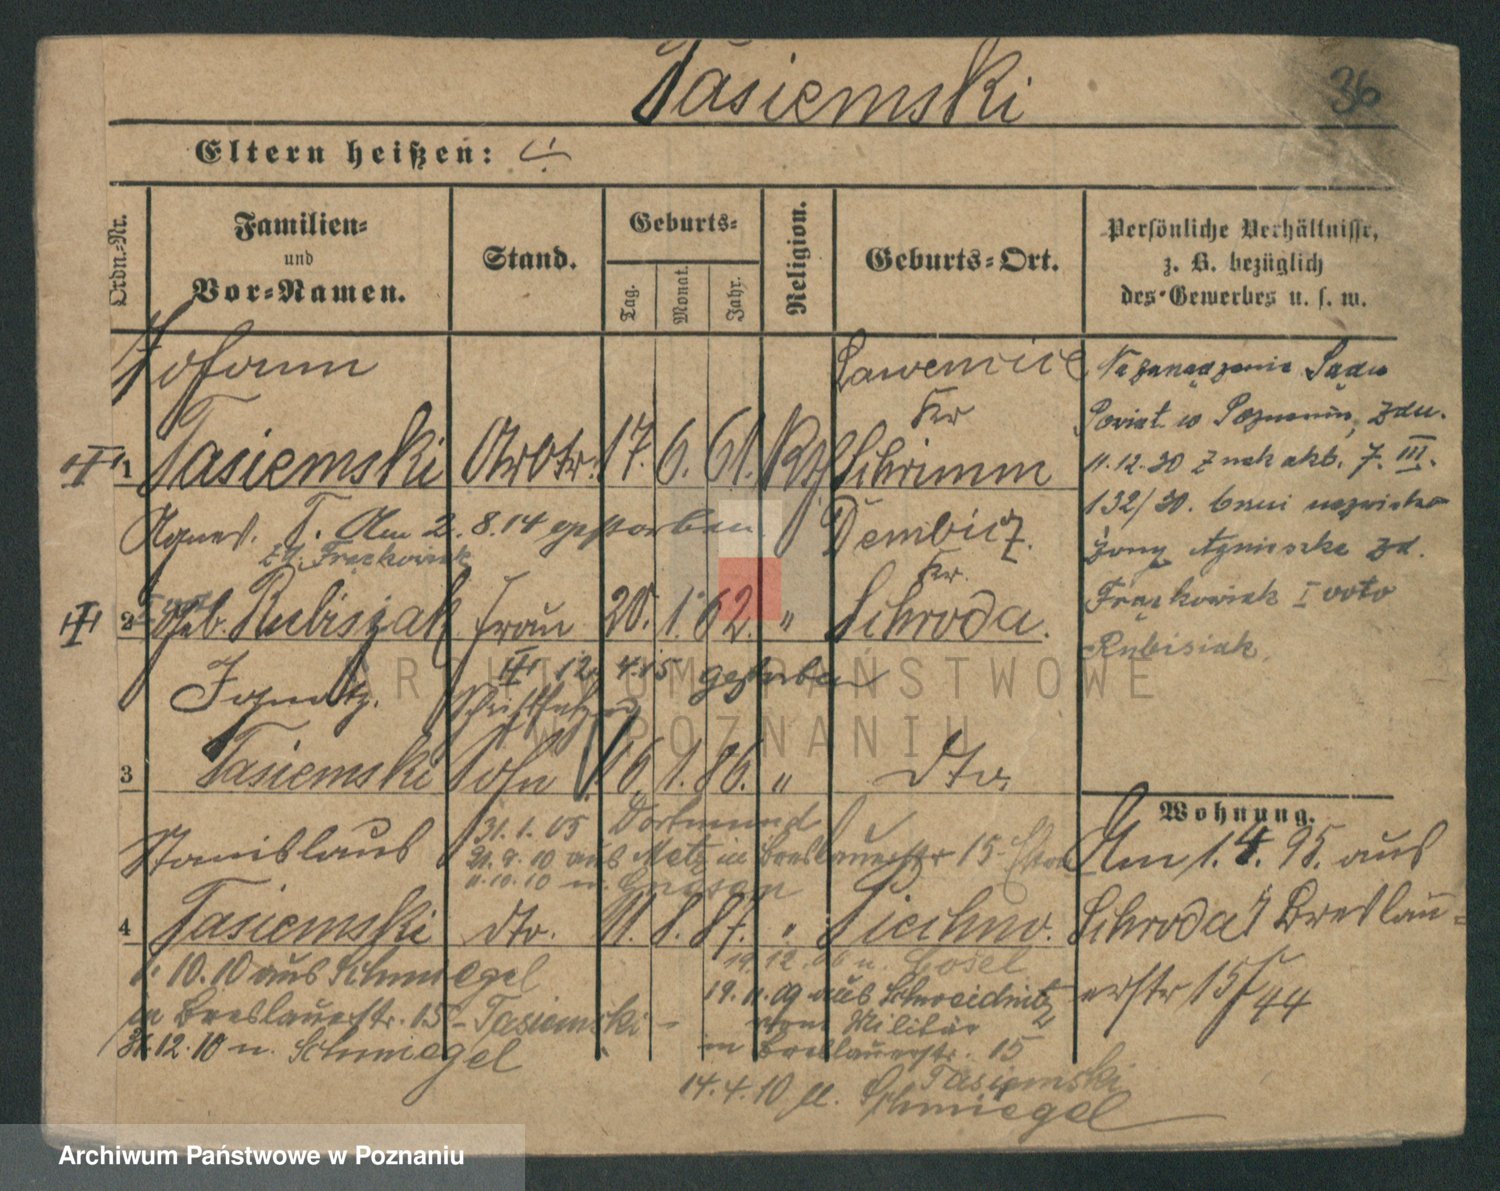 Tasiemski
36
Eltern heißen:
Ordn.-Nr.
Familien-
und
Vor-Namen.
Stand.
Geburts-
Tag.
Monat.
Jahr.
Religion.
Geburts-Ort.
Persönliche Verhältnisse,
z. B. bezüglich
des Gewerbes u. s. w.
Johann
Tasiemski
1
17. 6. 61.
Kr
Schrimm
Agnes. T. Am 2. 8. 14 gestorben
zd. Frąckowiak
2 geb. Rubisiak Frau 20. 1. 62. "
Dembicz.
Kr.
Schroda.
Na zarządzenie Sądu
Powiat w Poznaniu, zdn.
11.12.30 Znak akt. 7. III.
132/30. brzmi nazwisko
żony Agnieszka zd.
Frąckowiak I voto
Rubisiak.
12. 4. 15 gestorben
Ignatz.
3 Tasiemski Sohn 16. 1. 86. " dto.
31. 1. 05 Dortmund
31. 8. 10 aus Metz in Breslauerstr 15
11.10.10 n. Gnesen
Stanislaus
4 Tasiemski dto. 11. 8. 87. "
Wohnung.
Am 1. 4. 95. aus
Schroda Breslau-
erstr 15/44
1. 10. 10 aus Schmiegel
in Breslauerstr. 15 - Tasiemski -
31.12.10 n. Schmiegel
19. 12. 06 n. Cosel
19. 11. 09 aus Schweidnitz
vom Militär
in Breslauerstr. 15
Tasiemski
14. 4. 10 n. Schmiegel
ARCHIWUM PAŃSTWOWE
W POZNANIU
Archiwum Państwowe w Poznaniu